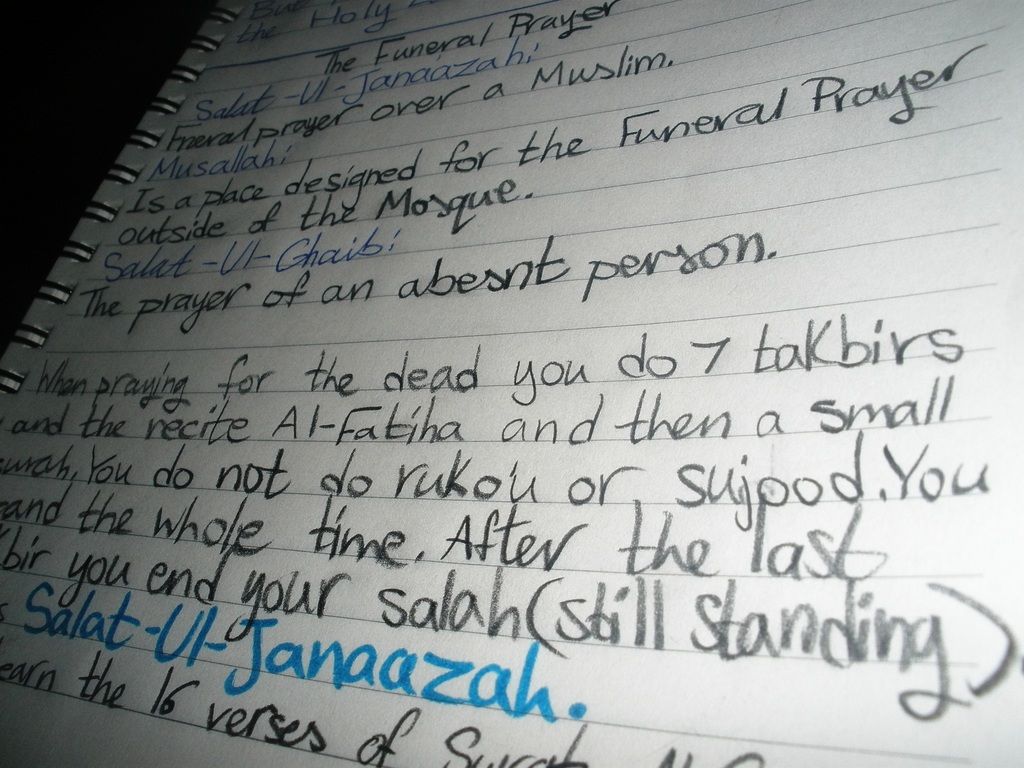 But
the Holy
The Funeral Prayer
Salat-Ul-Janaazah:
Fneral prayer over a Muslim.
Musallah:
Is a place designed for the Funeral Prayer
outside of the Mosque.
Salat-Ul-Ghaib:
The prayer of an abesnt person.
When praying for the dead you do 7 takbirs
and the recite Al-Fatiha and then a small
surah, You do not do ruko'u or sujood. You
and the whole time. After the last
bir you end your salah (still standing)
Salat-Ul-Janaazah.
earn the 16 verses of Surat